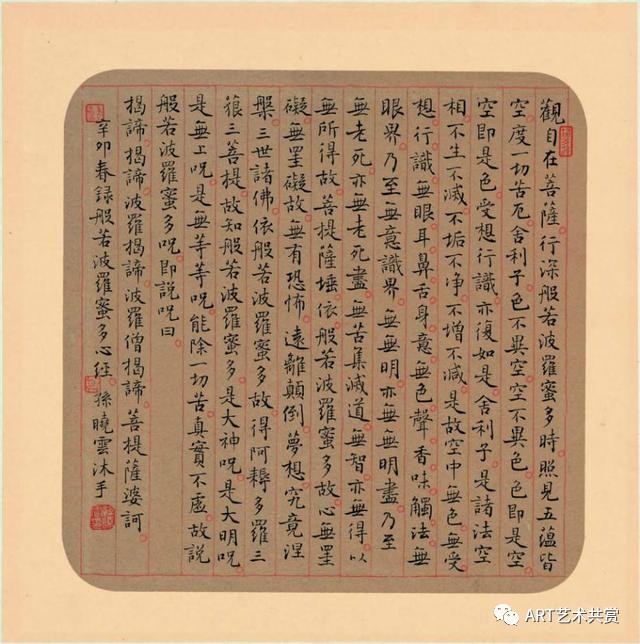 觀自在菩薩行深般若波羅蜜多時照見五蘊皆
空度一切苦厄舍利子色不異空空不異色色即是空
空即是色受想行識亦復如是舍利子是諸法空
相不生不滅不垢不净不增不減是故空中無色無受
想行識無眼耳鼻舌身意無色聲香味觸法無
眼界乃至無意識界無無明亦無無明盡乃至
無老死亦無老死盡無苦集滅道無智亦無得以
無所得故菩提薩埵依般若波羅蜜多故心無罣
礙無罣礙故無有恐怖遠離顛倒夢想究竟涅
槃三世諸佛依般若波羅蜜多故得阿耨多羅三
藐三菩提故知般若波羅蜜多是大神咒是大明咒
是無上咒是無等等咒能除一切苦真實不虛故說
般若波羅蜜多咒即說咒曰
揭諦揭諦波羅揭諦波羅僧揭諦菩提薩婆訶
辛卯春録般若波羅蜜多心經 孫曉雲沐手
ART艺术共赏